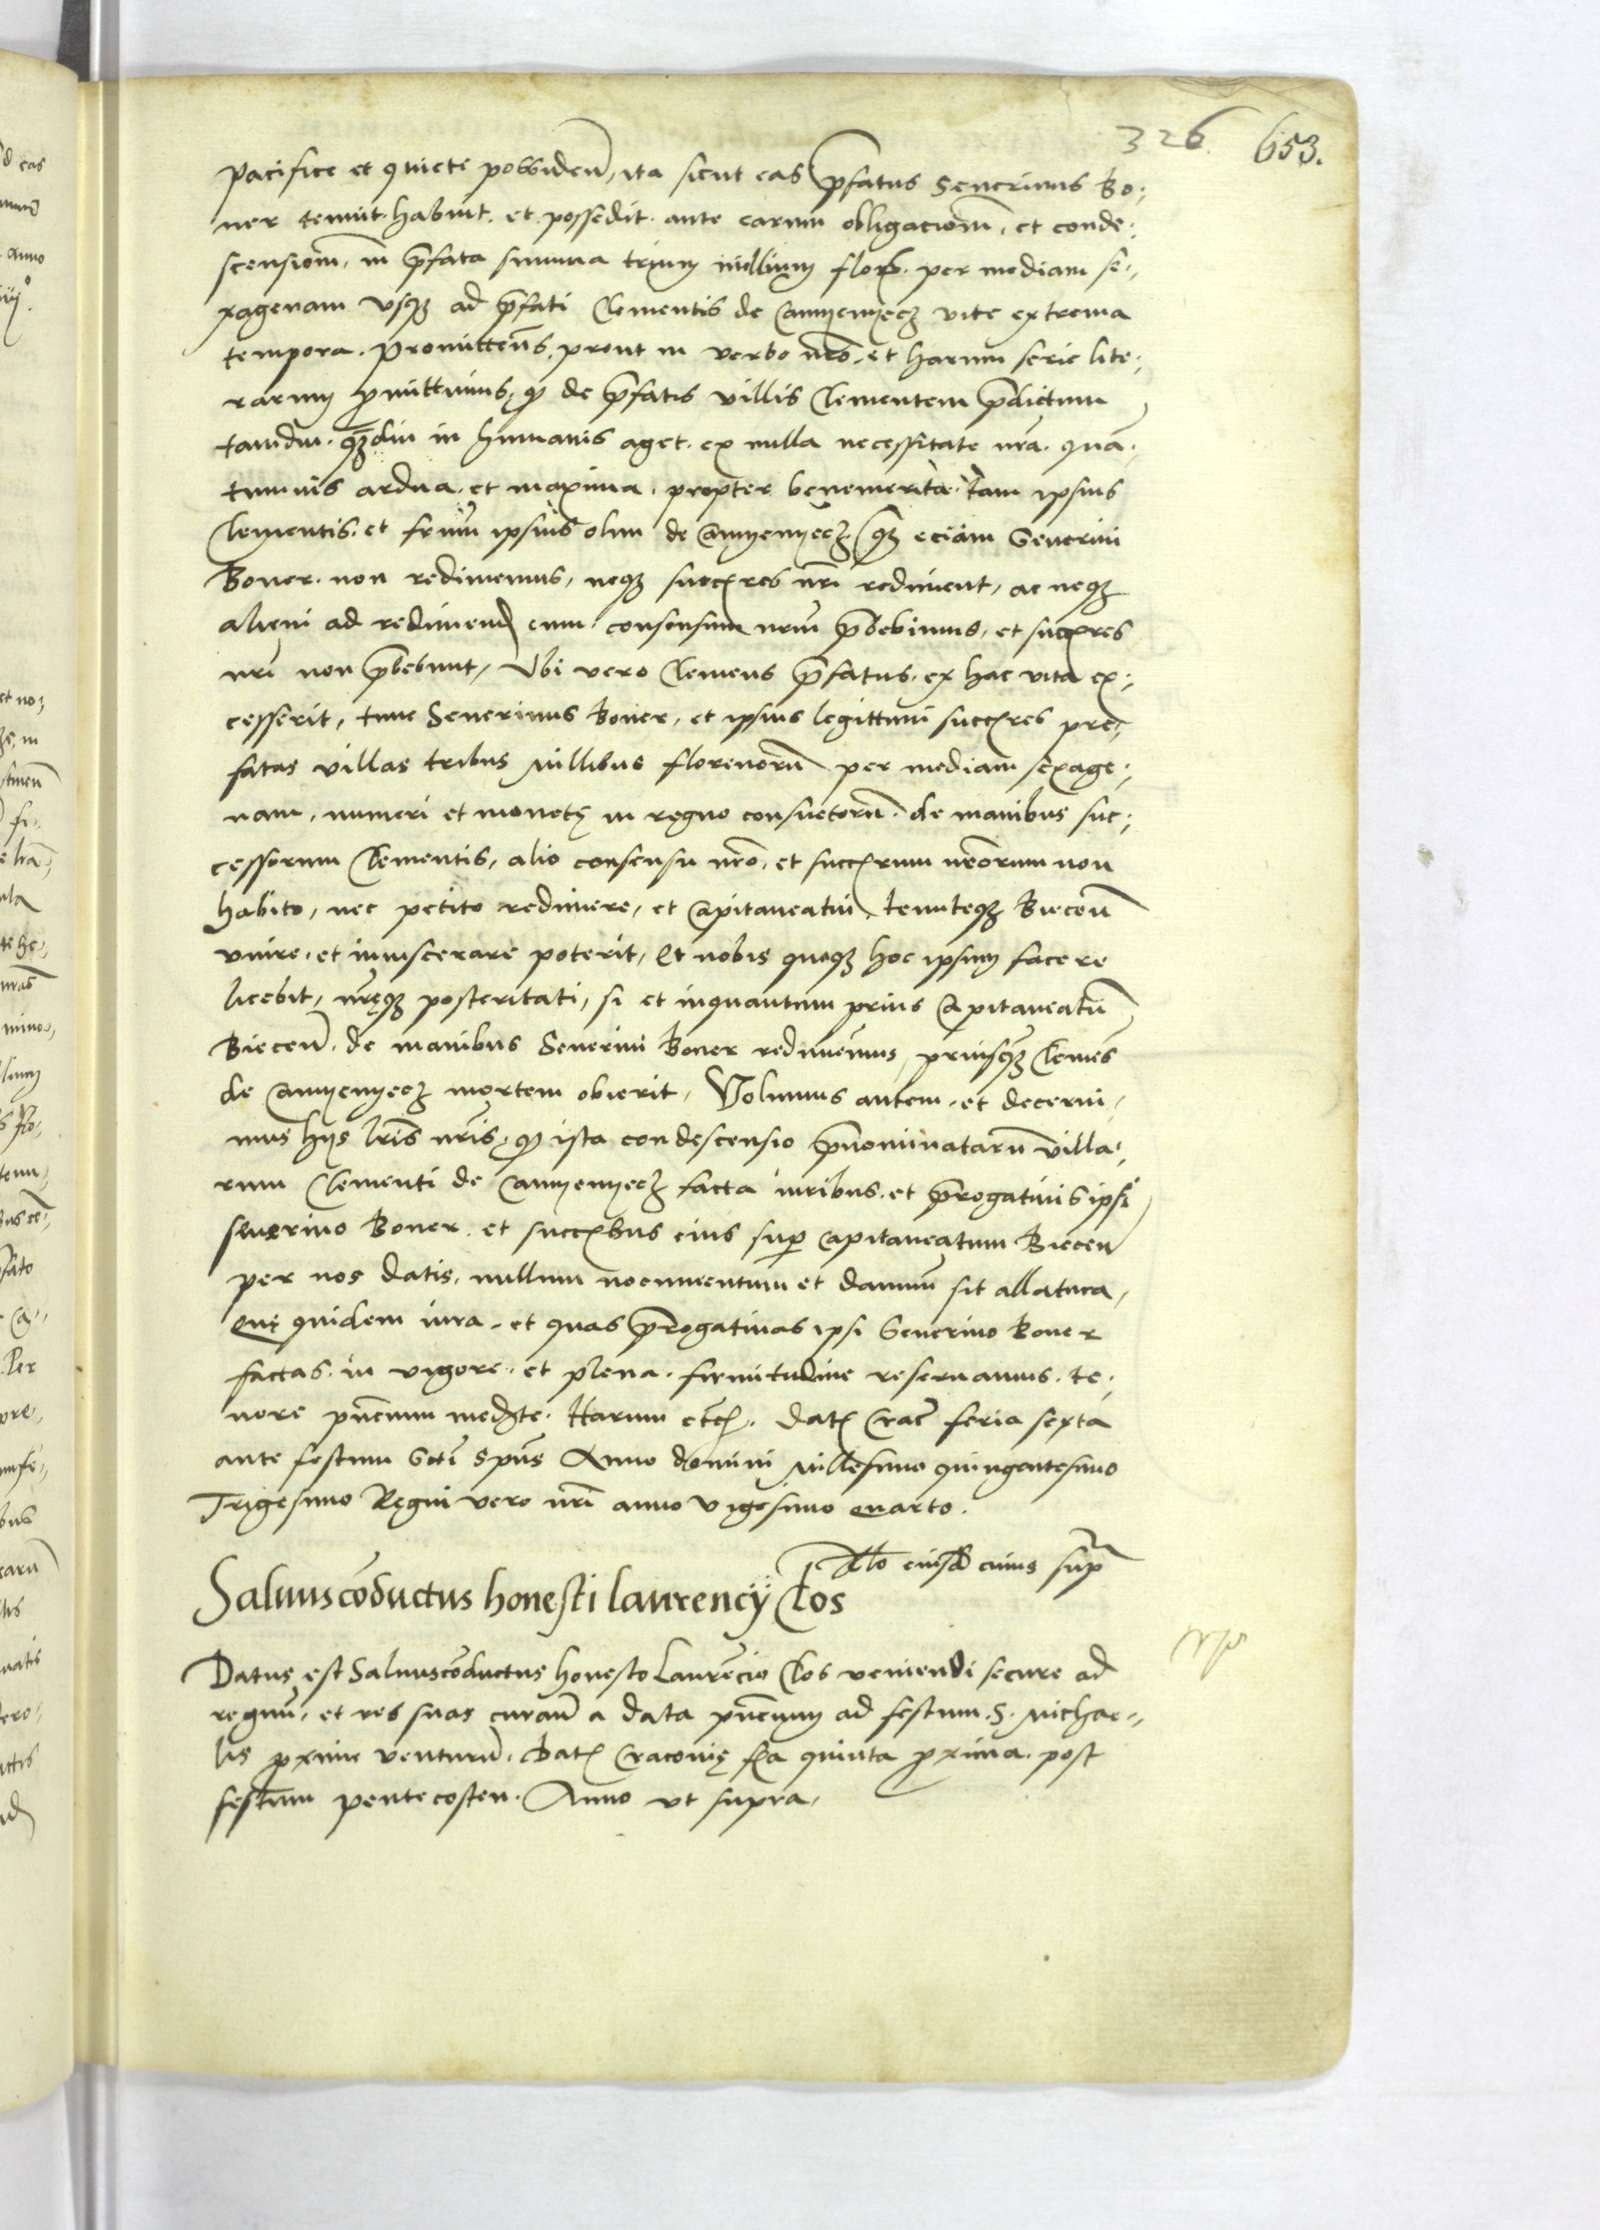 326. 653.
Pacifice et quiete possidend, ita sicut eas p̃fatus Seuerinus Bo-
ner tenuit habuit et possedit ante earum obligaciom̃, et conde-
scensiom̃, in p̃fata summa trium millium flor̃ per mediam se-
xagenam vsq̃ ad p̃fati Clementis de Camyenyecz vite extrema
tempora. Promitten̄s, prout in verbo nr̃o, et harum serie lite-
rarum promittimus, q̃ de p̃fatis villis Clementem p̃dictum
tamdiu quãdiu in humanis aget, ex nulla necessitate nr̃a quan-
tumuis ardua et maxima, propter benemerita tam ipsius
Clementis, et fr̃um ipsius olim de Camyenyecz, q̃ eciam Seuerini
Boner non redimemus, neq̃ succ̃res nr̃i rediment, ac neq̃
alicui ad redimend̃ eum consensum nr̃um p̃bebimus, et succ̃res
nr̃i non p̃bebunt, Vbi vero Clemens p̃fatus ex hac vita ex-
cesserit, tunc Seuerinus Boner, et ipsius legittimi succ̃res pre-
fatas villas tribus millibus florenorũ per mediam sexage-
nam, numeri et monetę in regno consuetorũ de manibus suc-
cessorum Clementis, alio consensu nr̃o, et succ̃rum nr̃orum non
habito, nec petito redimere, et Capitaneatui, tenuteq̃ Biecen̄
vnire, et inuiscerare poterit, Et nobis quoq̃ hoc ipsum facere
licebit, nr̃ęq̃ posteritati, si et inquantum prius Capitaneatũ
Biecen̄ de manibus Seuerini Boner redimemus, priusq̃ Clemẽs
de Camyenyecz mortem obierit, Volumus autem, et decerni-
mus hijs lr̃is nr̃is, q̃ ista condescensio p̃nominatarũ villa-
rum Clementi de Camyenyecz facta iuribus, et p̃rogatiuis ipsi
Seuerino Boner et succ̃bus eius sup̃ Capitaneatum Biecen̄
per nos datis, nullum nocumentum et damnũ sit allatura,
Quę quidem iura, et quas p̃rogatiuas ipsi Seuerino Boner
factas in vigore, et plena firmitudine reseruamus, te-
nore pñcium med̃te. Harum etc̃. Dat̃ Crac̃ feria sexta
ante festum Scti Sp̃us Anno domini Millesimo quingentesimo
Trigesimo Regni vero nr̃i anno vigesimo quarto.
R̃llo eiusd̃ cuius sup̃
Saluuscõductus honesti laurencij Clos
Datus est Saluuscõductus honesto Laurẽcio Clos veniendi secure ad
regnũ, et res suas curan̄d a data pñcium ad festum S. Michae-
lis proxime venturũ. Dat̃ Cracouię fr̃a quinta proxima post
festum pentecosten. Anno vt supra,